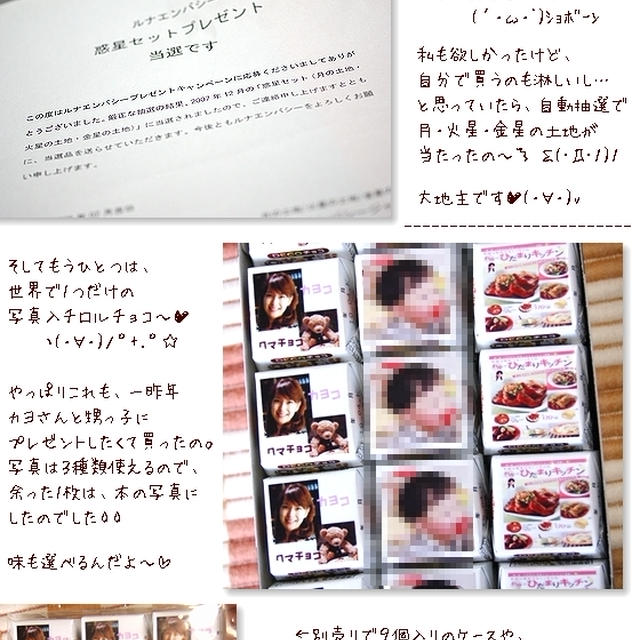 ルナエンバシー
惑星セットプレゼント
当選です
この度はルナエンバシープレゼントキャンペーンに応募くださいましてありが
とうございました。厳正な抽選の結果、2007年12月の「惑星セット（月の土地・
火星の土地・金星の土地）」に当選されましたので、ご連絡申し上げますととも
に、当選品を送らせていただきます。今後ともルナエンバシーをよろしくお願
い申し上げます。
(´･ω･`)ショボーン
私も欲しかったけど、
自分で買うのも淋しいし…
と思っていたら、自動抽選で
月・火星・金星の土地が
当たったの〜 Σ(･Д･)/
大地主です♥(･∀･)v
そしてもうひとつは、
世界で1つだけの
写真入チロルチョコ〜♥
ヽ(･∀･)/ﾟ+.ﾟ☆
やっぱりこれも、一昨年
カヨさんと甥っ子に
プレゼントしたくて買ったの。
写真は3種類使えるので、
余った1枚は、本の写真に
したのでした
味も選べるんだよ〜
カヨコ
クマチョコ
ひだまりキッチン
カヨコ
クマチョコ
ひだまりキッチン
カヨコ
クマチョコ
ひだまりキッチン
←別売りで9個入りのケースや、